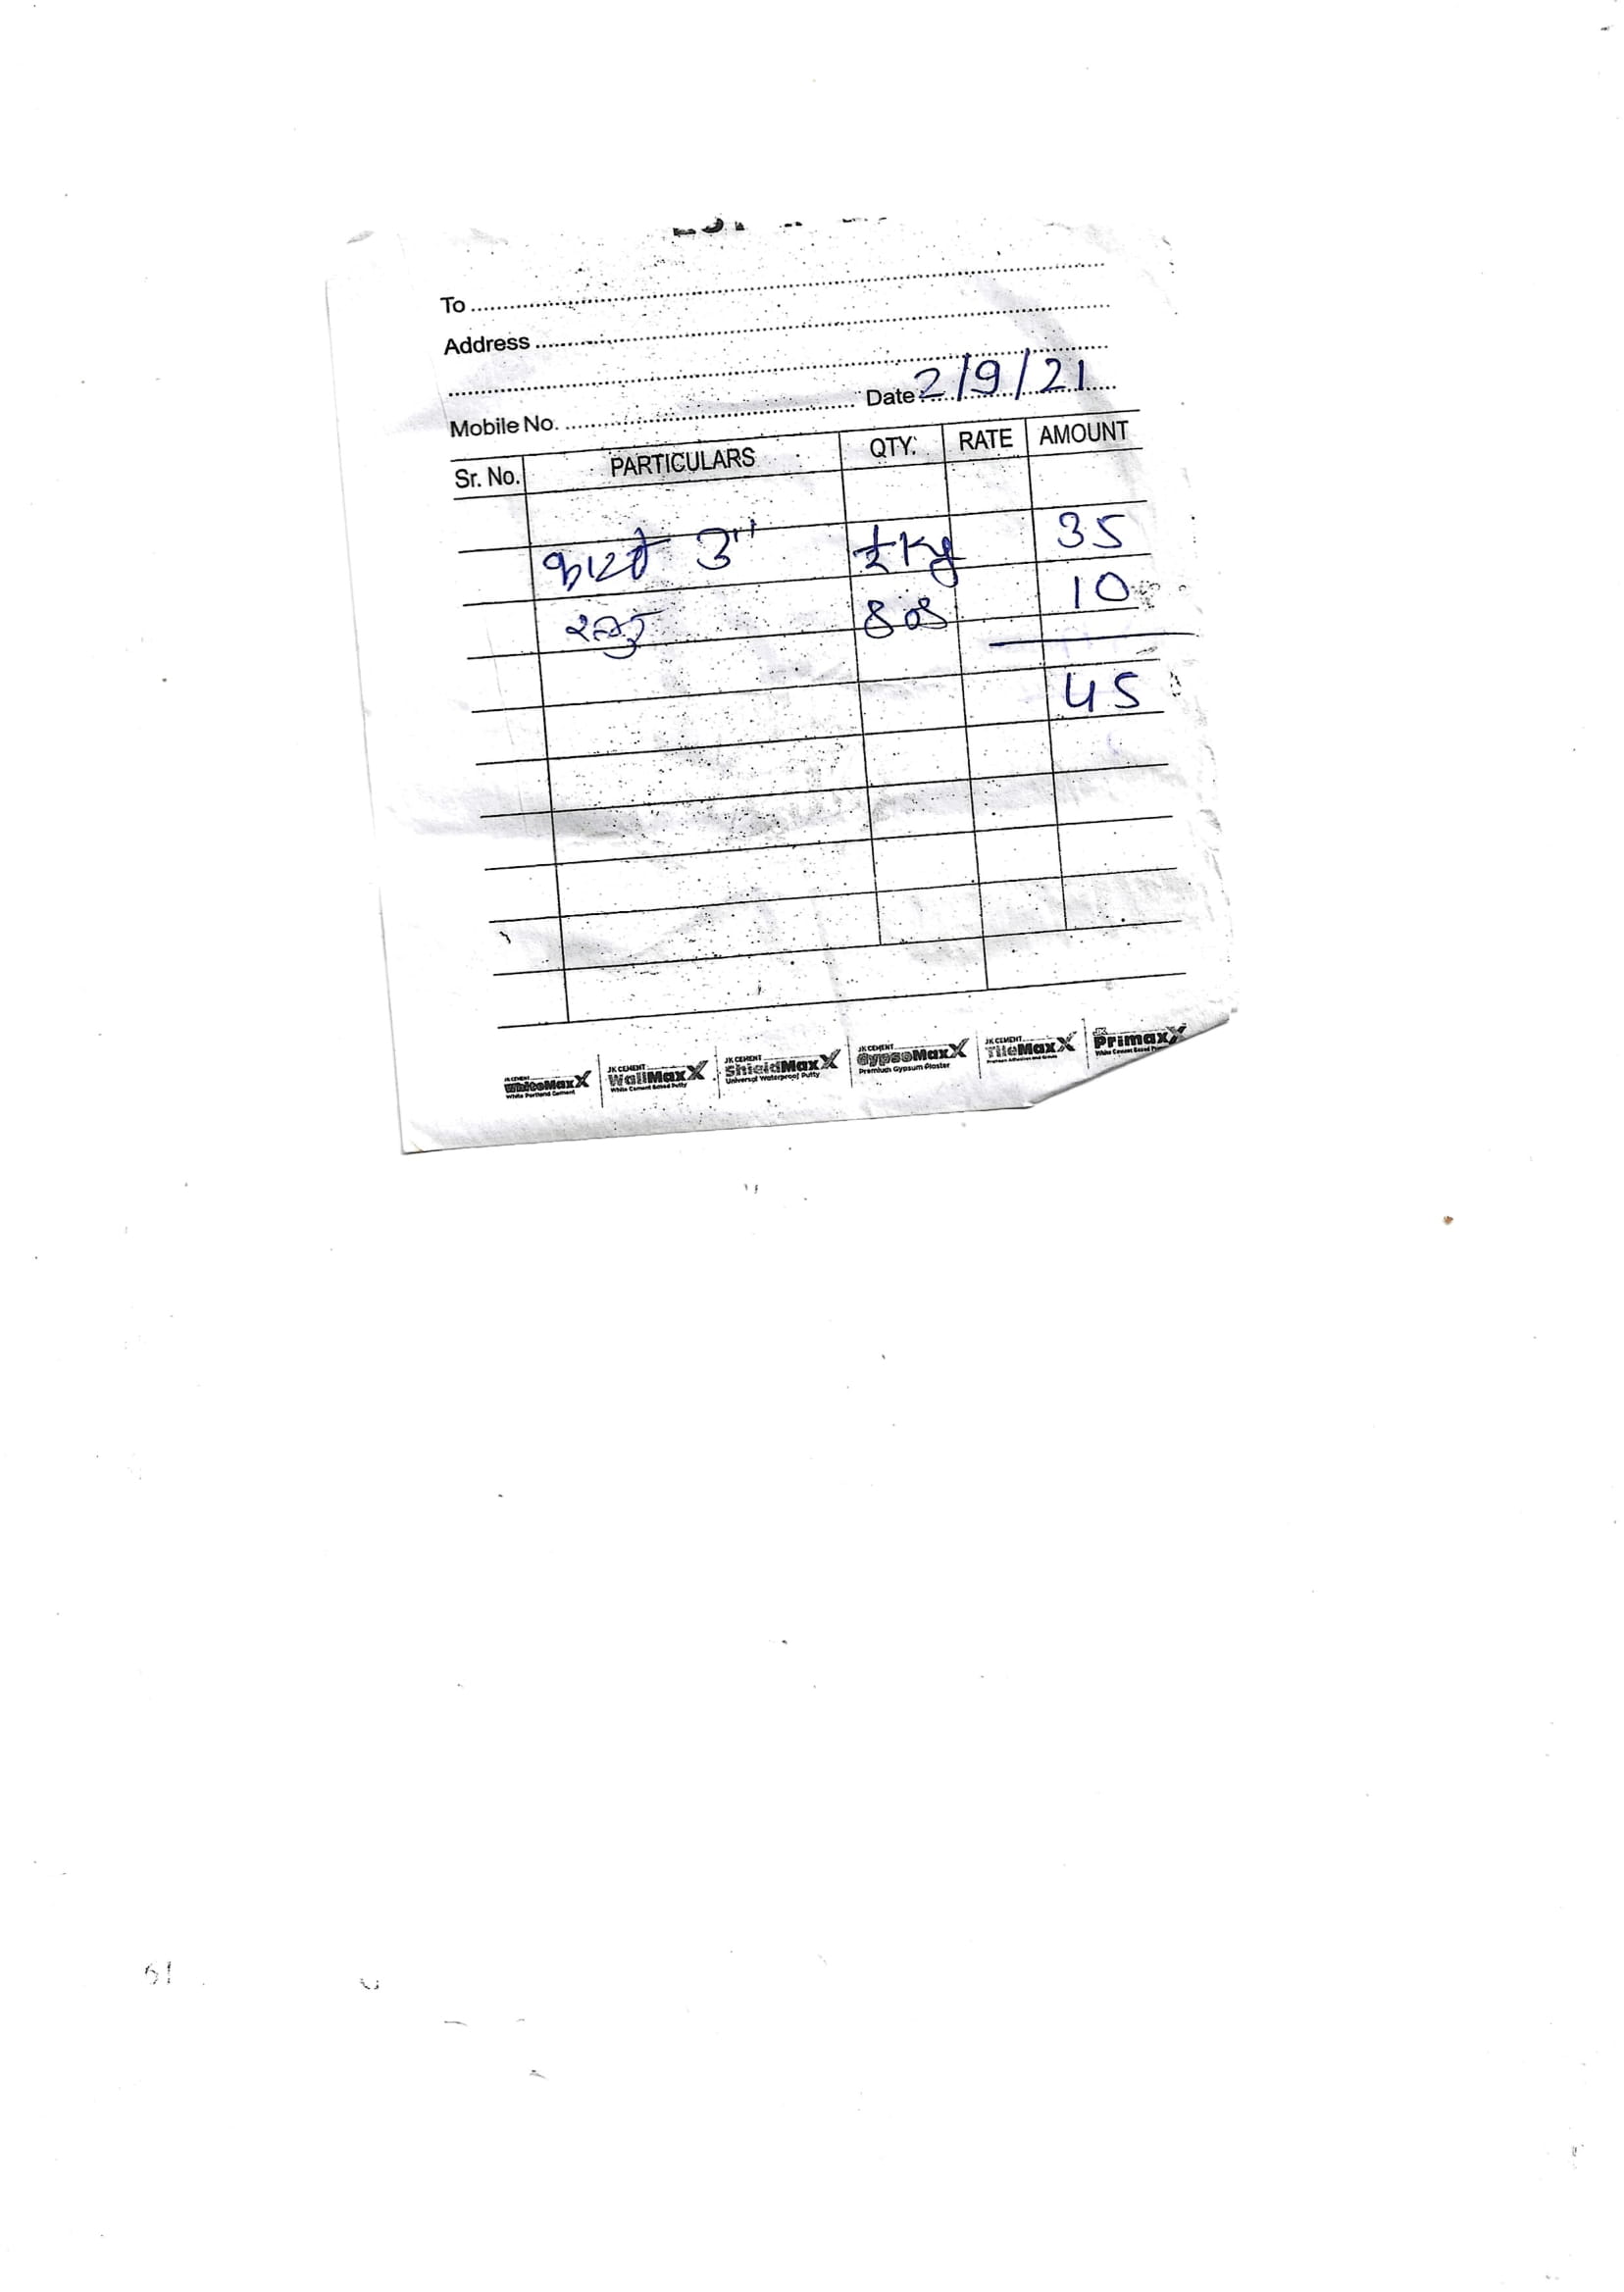 To
Address
Mobile No. Date 2/9/21
Sr. No. PARTICULARS QTY. RATE AMOUNT
3" ½Kg 35
10
45
JK CEMENT WhiteMaxX White Portland Cement
JK CEMENT WallMaxX White Cement Based Putty
JK CEMENT ShieldMaxX Universal Waterproof Putty
JK CEMENT GypsoMaxX Premium Gypsum Plaster
JK CEMENT TileMaxX
JK PrimaxX White Cement Based